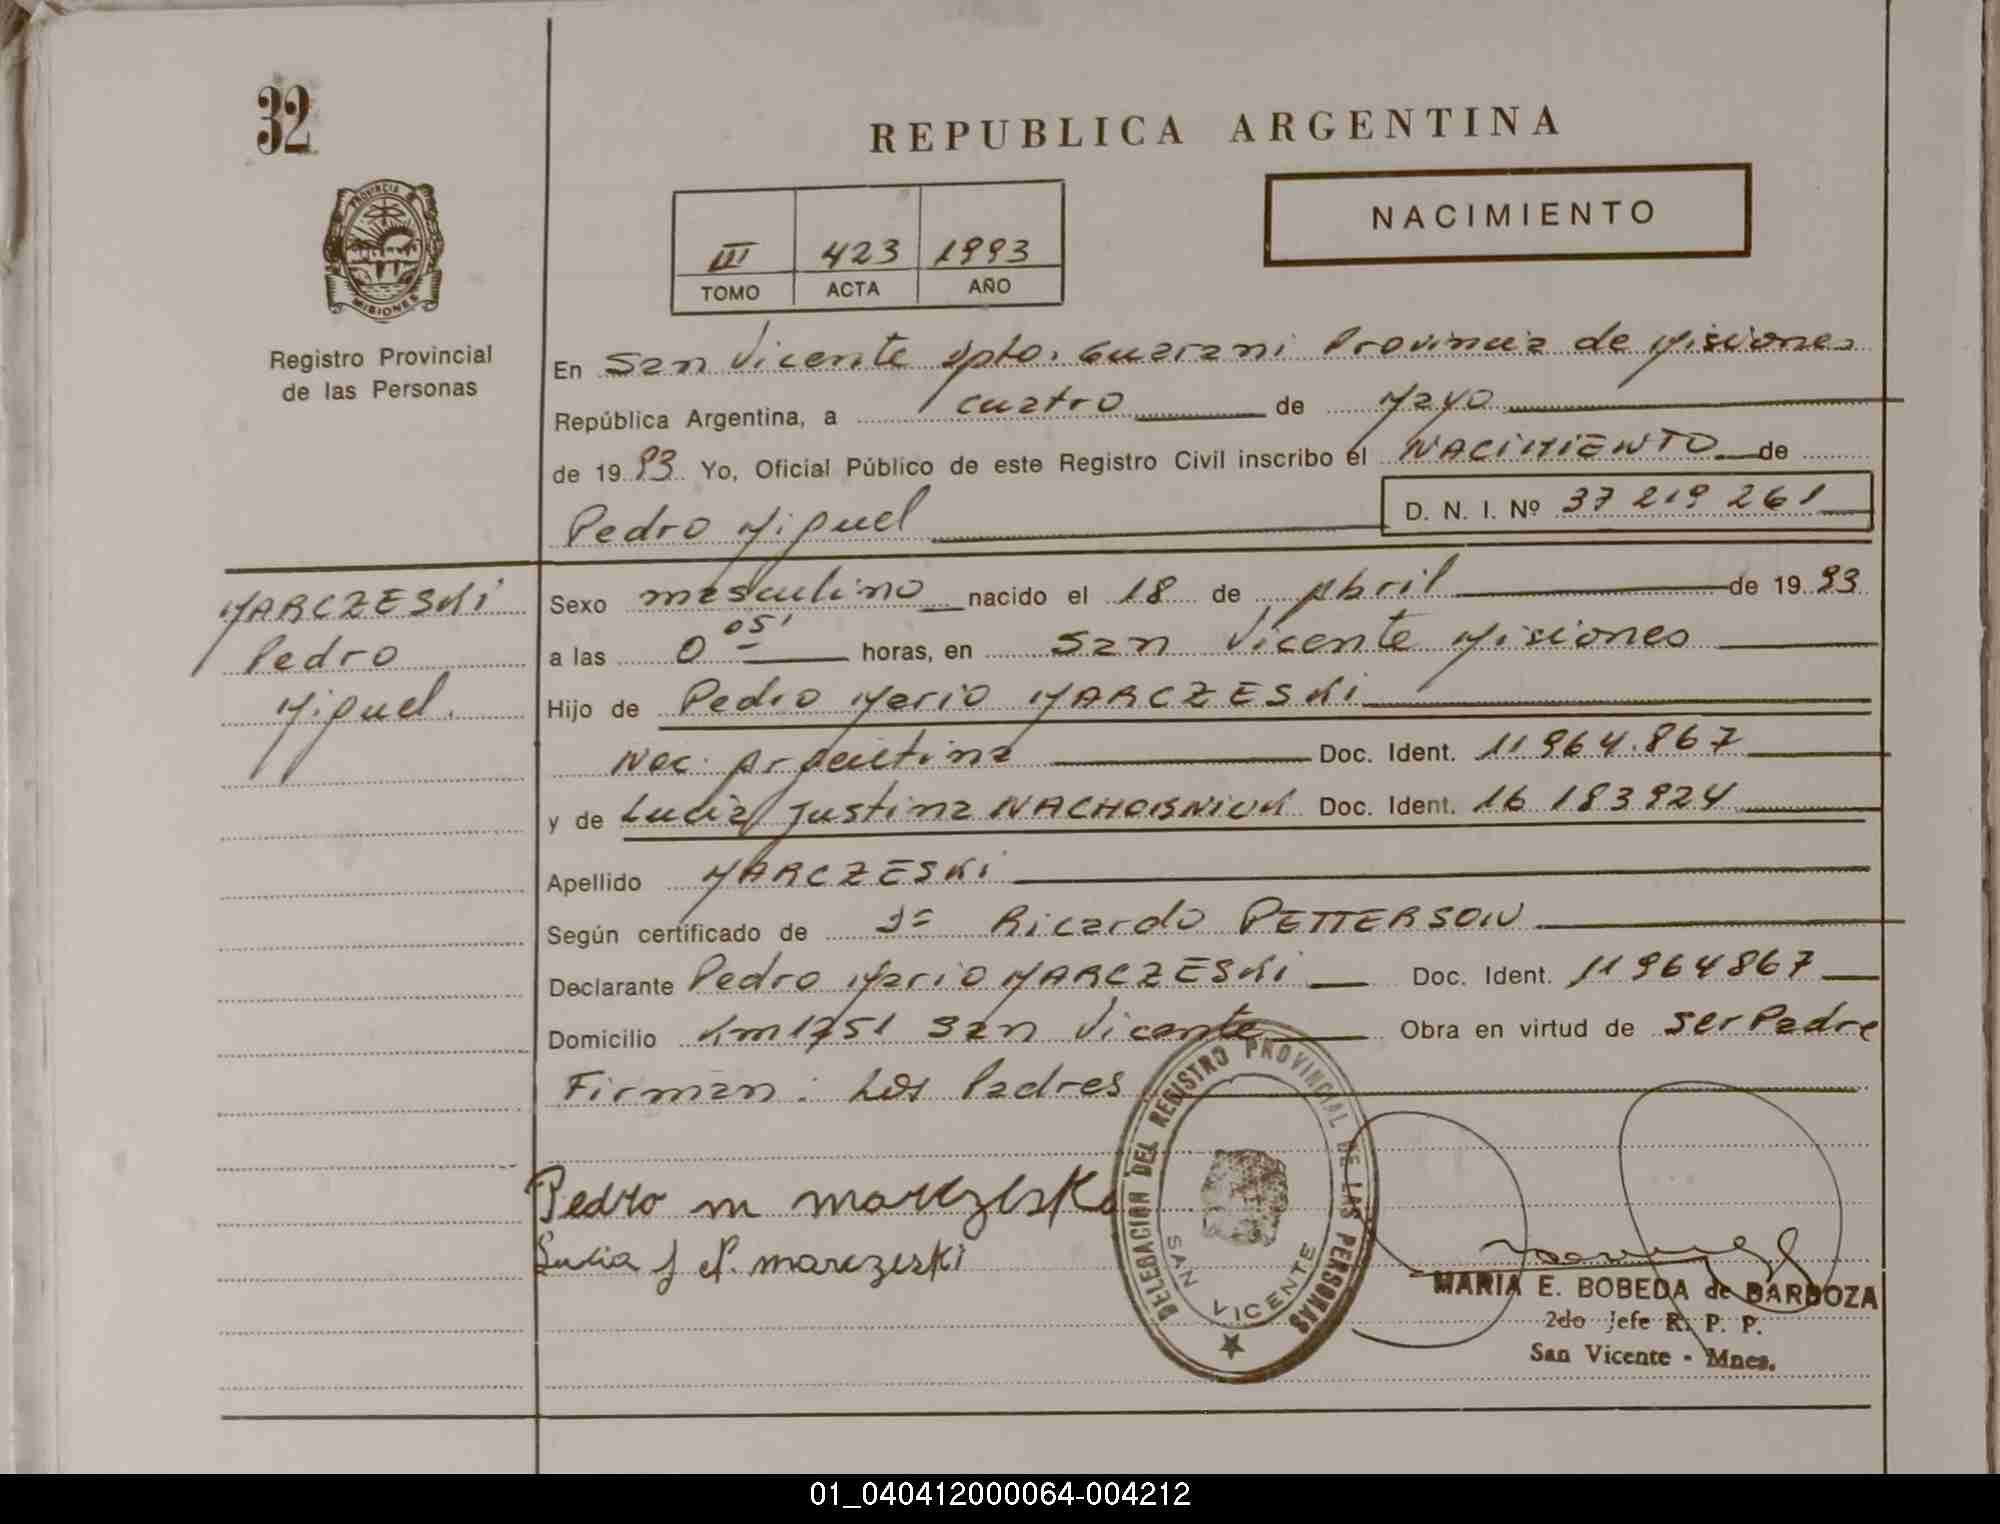 32
REPUBLICA ARGENTINA
PROVINCIA
MISIONES
Registro Provincial
de las Personas
NACIMIENTO
III 423 1993
TOMO ACTA AÑO
En San Vicente Dpto. Guarani Provincia de Misiones
República Argentina, a cuatro de Mayo
de 1993 Yo, Oficial Público de este Registro Civil inscribo el NACIMIENTO de
Pedro Miguel D. N. I. Nº 37 219 261
MARCZESKI
Pedro
Miguel.
Sexo masculino nacido el 18 de Abril de 1993
a las 0 05' horas, en San Vicente Misiones
Hijo de Pedro Mario MARCZESKI
Nac. Argentina Doc. Ident. 11 964.867
y de Lucia Justina NACHORNIUK Doc. Ident. 16 183924
Apellido MARCZESKI
Según certificado de Ricardo PETTERSON
Declarante Pedro Mario MARCZESKI Doc. Ident. 11964867
Domicilio Km 1251 San Vicente Obra en virtud de ser Padre
Firman: Los Padres
Pedro m marczeski
Lucia J N. marczeski
DELEGACION DEL REGISTRO PROVINCIAL DE LAS PERSONAS
SAN VICENTE
MARIA E. BOBEDA de BARBOZA
2do Jefe R. P. P.
San Vicente - Mnes.
01_040412000064-004212